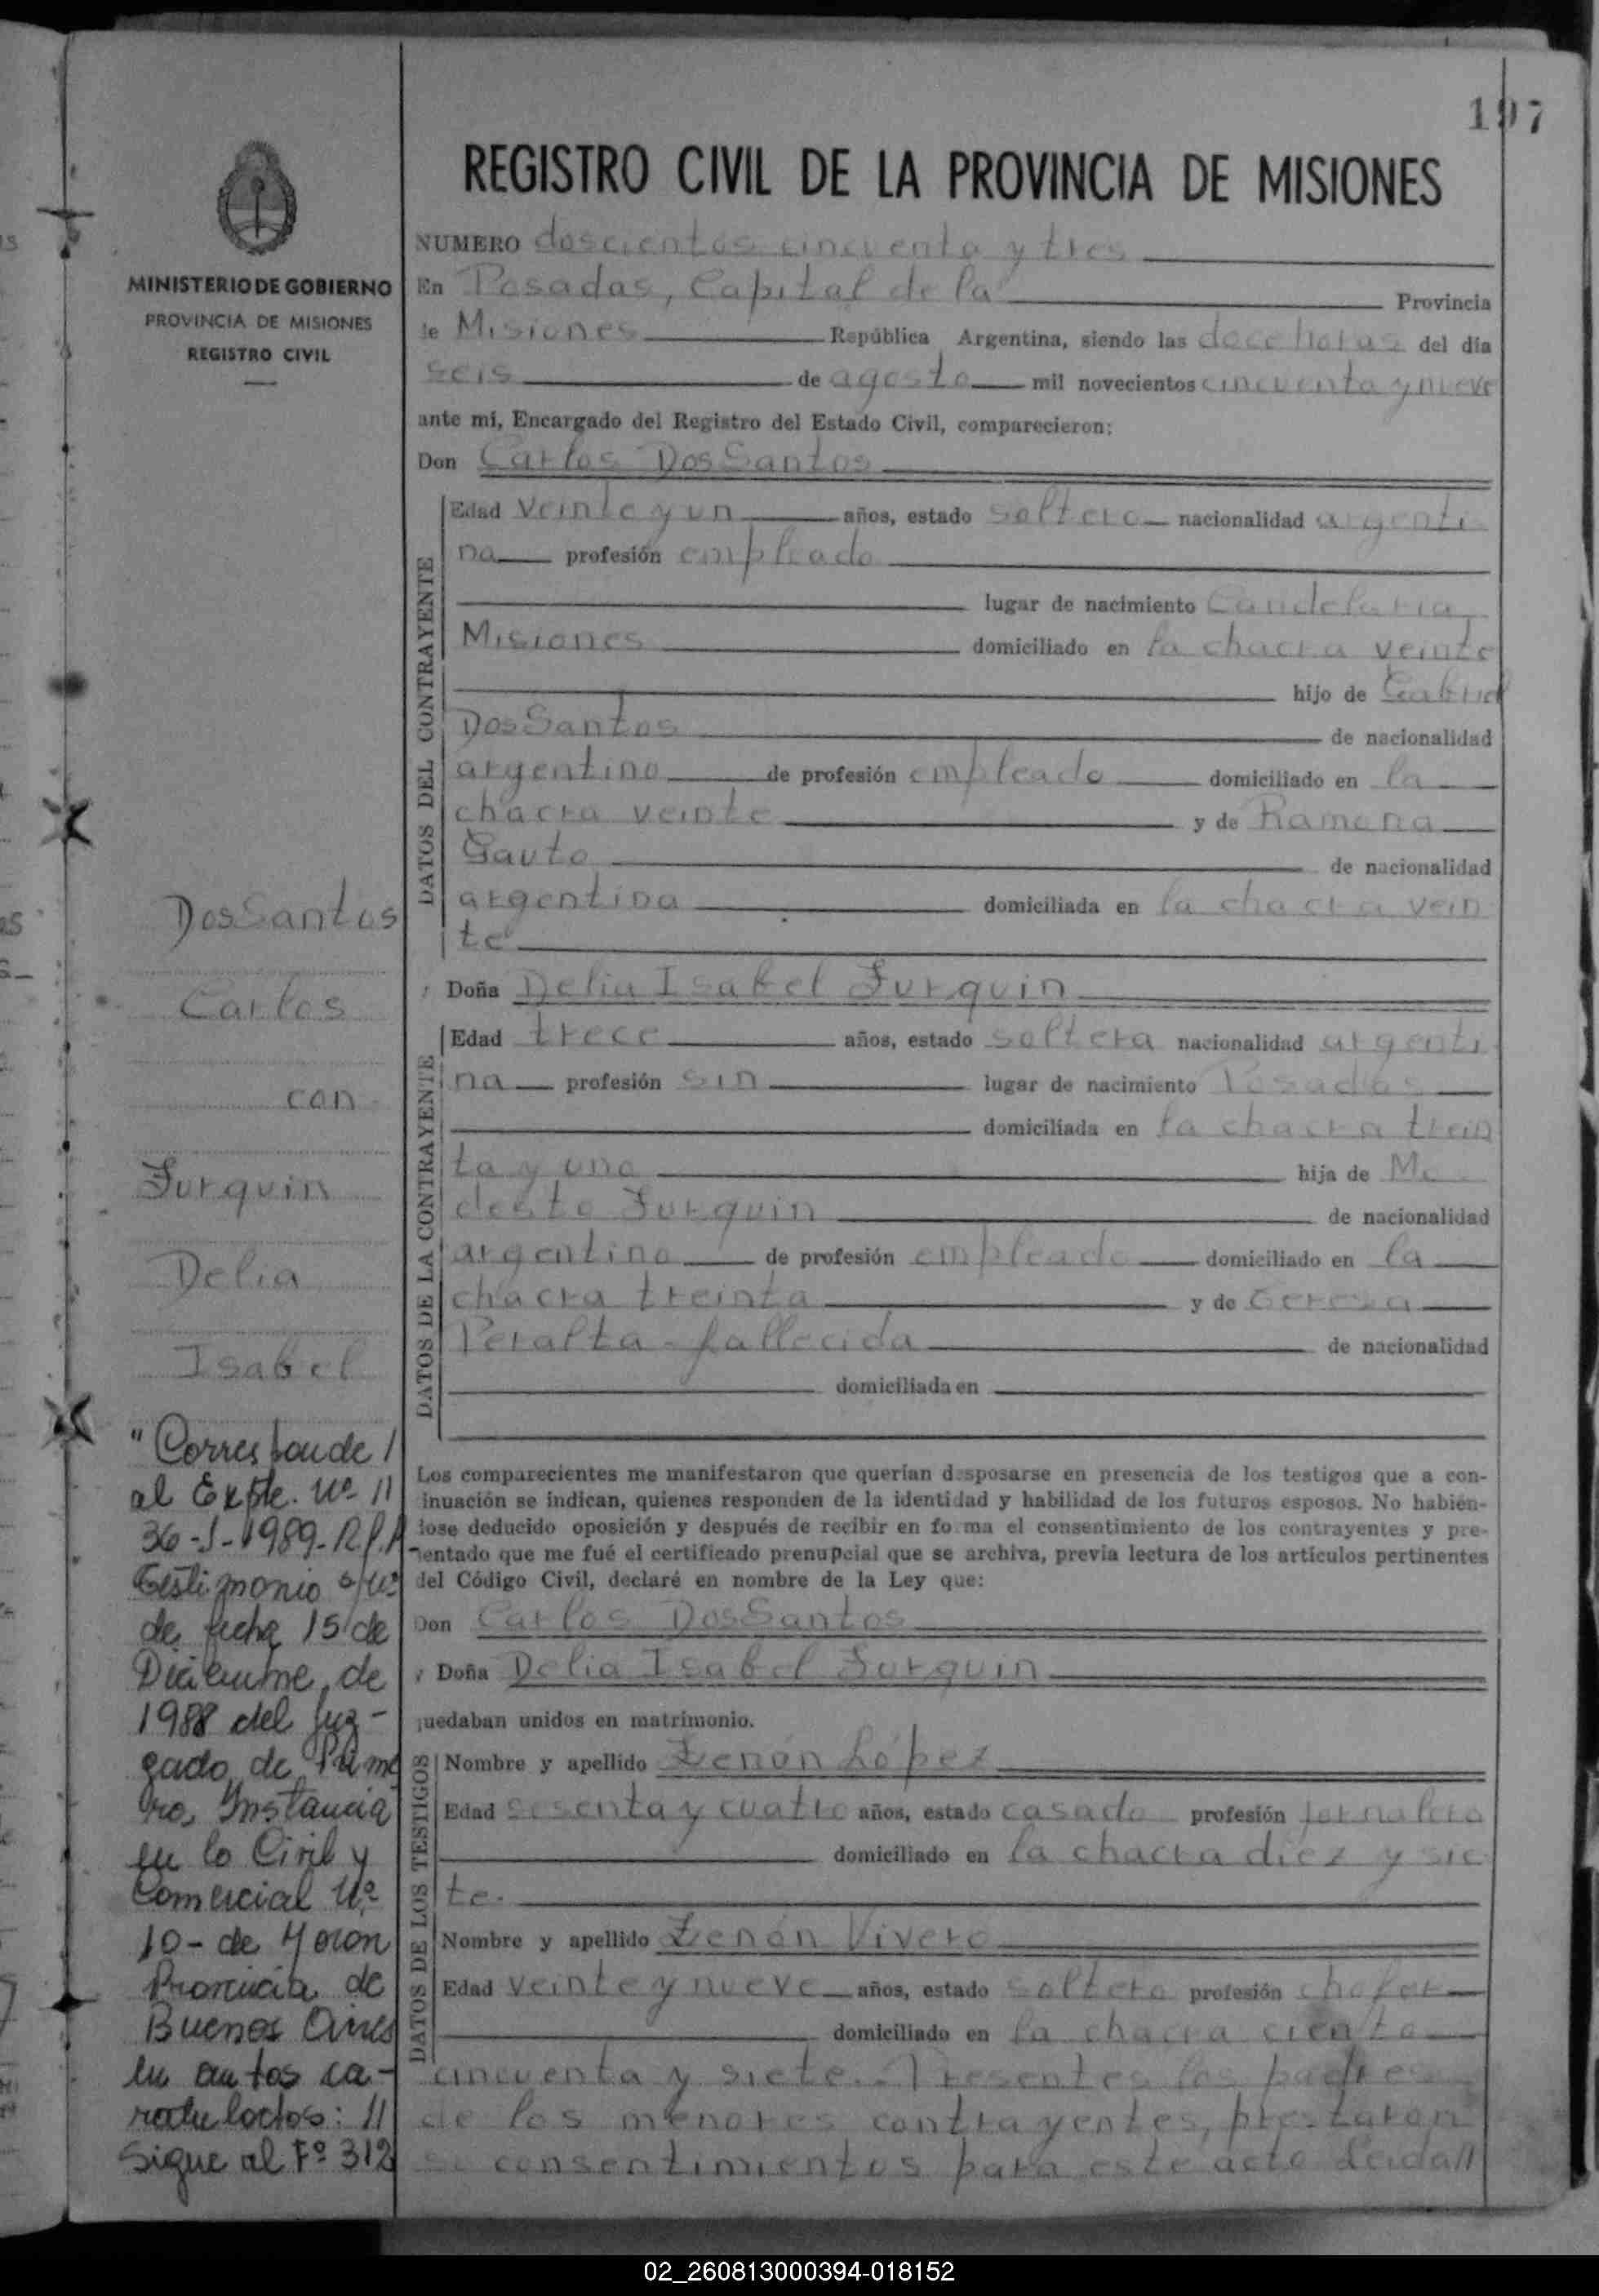 197
REGISTRO CIVIL DE LA PROVINCIA DE MISIONES
MINISTERIO DE GOBIERNO
PROVINCIA DE MISIONES
REGISTRO CIVIL
NUMERO doscientos cincuenta y tres
En Posadas, Capital de la Provincia
de Misiones República Argentina, siendo las doce horas del día
seis de agosto mil novecientos cincuenta y nueve
ante mí, Encargado del Registro del Estado Civil, comparecieron:
Don Carlos DosSantos
DATOS DEL CONTRAYENTE
Edad veinte y un años, estado soltero nacionalidad argenti
na profesión empleado
lugar de nacimiento Candelaria
Misiones domiciliado en la chacra veinte
hijo de Gabriel
DosSantos de nacionalidad
argentino de profesión empleado domiciliado en la
chacra veinte y de Ramona
Gauto de nacionalidad
argentina domiciliada en la chacra vein
te
y Doña Delia Isabel Furquin
DATOS DE LA CONTRAYENTE
Edad trece años, estado soltera nacionalidad argenti
na profesión sin lugar de nacimiento Posadas
domiciliada en la chacra trein
ta y uno hija de Mo
desto Furquin de nacionalidad
argentino de profesión empleado domiciliado en la
chacra treinta y de Teresa
Peralta - fallecida de nacionalidad
domiciliada en
Los comparecientes me manifestaron que querían desposarse en presencia de los testigos que a con-
inuación se indican, quienes responden de la identidad y habilidad de los futuros esposos. No habién-
lose deducido oposición y después de recibir en forma el consentimiento de los contrayentes y pre-
sentado que me fué el certificado prenupcial que se archiva, previa lectura de los artículos pertinentes
del Código Civil, declaré en nombre de la Ley que:
Don Carlos DosSantos
y Doña Delia Isabel Furquin
quedaban unidos en matrimonio.
DATOS DE LOS TESTIGOS
Nombre y apellido Zenón López
Edad sesenta y cuatro años, estado casado profesión jornalero
domiciliado en la chacra diez y sie
te.
Nombre y apellido Zenón Vivero
Edad veinte y nueve años, estado soltero profesión chofer
domiciliado en la chacra ciento
cincuenta y siete. Presentes los padres
de los menores contrayentes, prestaron
su consentimientos para este acto Leida//
DosSantos
Carlos
con
Furquin
Delia
Isabel
"Corresponde /
al Expte. Nº 11
36-J-1989-R.P.A
Testimonio s/nº
de fecha 15 de
Diciembre de
1988 del Juz-
gado de Prime
ro, Instancia
en lo Civil y
Comercial Nº
10- de Moron
Provincia de
Buenos Aires
en autos ca-
ratulados: //
Sigue al Fº 312
02_260813000394-018152